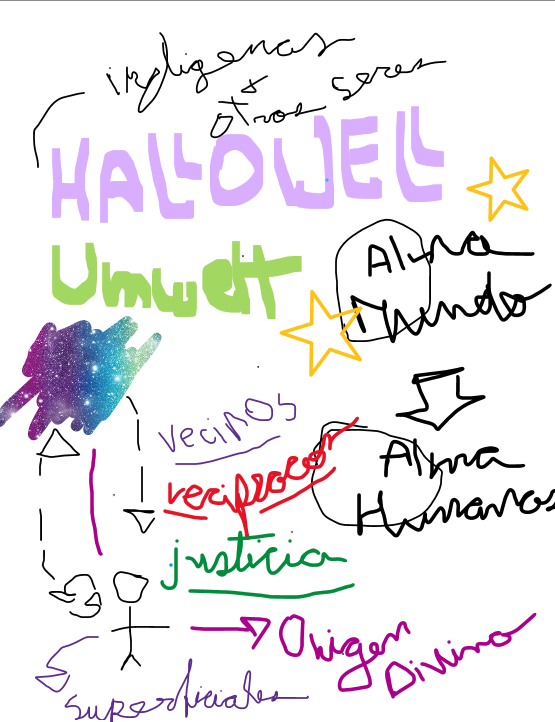 indigenas
&
otros seres
HALLOWELL
Umwelt
Alma
Mundo
vecinos
reciprocor
Alma
Humanos
justicia
Origen
Divino
superficiales